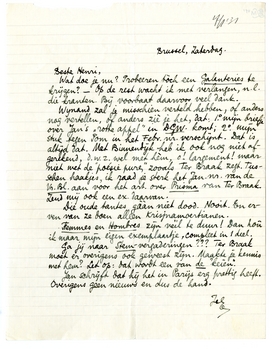 11/4 '31
Brussel, Zaterdag.
Beste Henri,
Wat doe je nu? Probeeren tòch een Galanteries te
krijgen? — Op de rest wacht ik met verlangen, n.l.
die kranten. Bij voorbaat daarvoor veel dank.
Wijnand zal je misschien verteld hebben, of anders
nog vertellen, of anders zie je het, dat: 1° mijn brief
over Jan's "rotte appel" in DGW komt; 2° mijn
stuk tegen Tom in het Febr. nr. verschijnt. Dat is
altijd iets. Met Binnendijk heb ik ook nog niet af-
gerekend, d.w.z. wel met hem, o! largement! maar
niet met de poésie pure, zooals Ter Braak zegt. Tus-
schen haakjes, ik raad je sterk het Jan. nr. van de
Vr. Bl. aan voor het art. over Prisma van Ter Braak.
Zend mij ook een ex. daarvan.
Die oude tantes gaan niet dood. Nooit. En er-
ven van ze doen alleen Krisjnamoertianen.
Femmes en Hombres zijn veel te duur! Dan hou
ik maar mijn eigen exemplaartje, compleet in 1 deel.
Ga jij naar Stem-vergaderingen??? Ter Braak
moet er overigens ook geweest zijn. Maakte je kennis
met hem? Let op: dat wordt een van de "keien".
Jan schrijft dat hij het in Parijs erg prettig heeft.
Overigens geen nieuws en dus de hand.